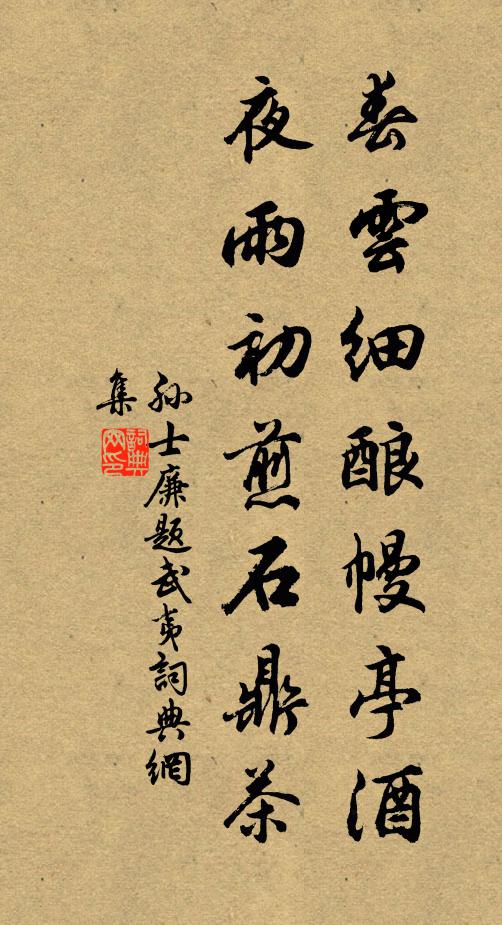 春雲细酿幔亭酒
夜雨初煎石鼎茶
孙士廉题武夷詞典網
集
詞典
网印